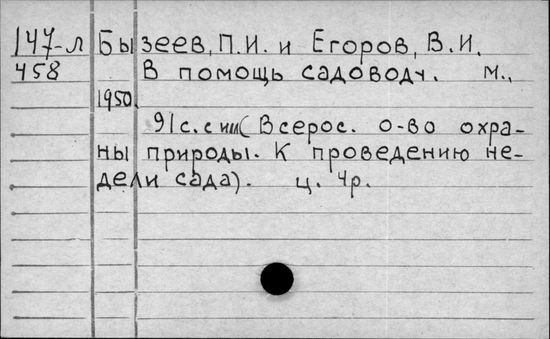 147-л Бызеев, П.И. и Егоров, В.И.
458 В помощь садоводу. М.,
1950.
91с. с илл (Всерос. о-во охра-
ны природы. К проведению не-
дели сада). ц. 4р.